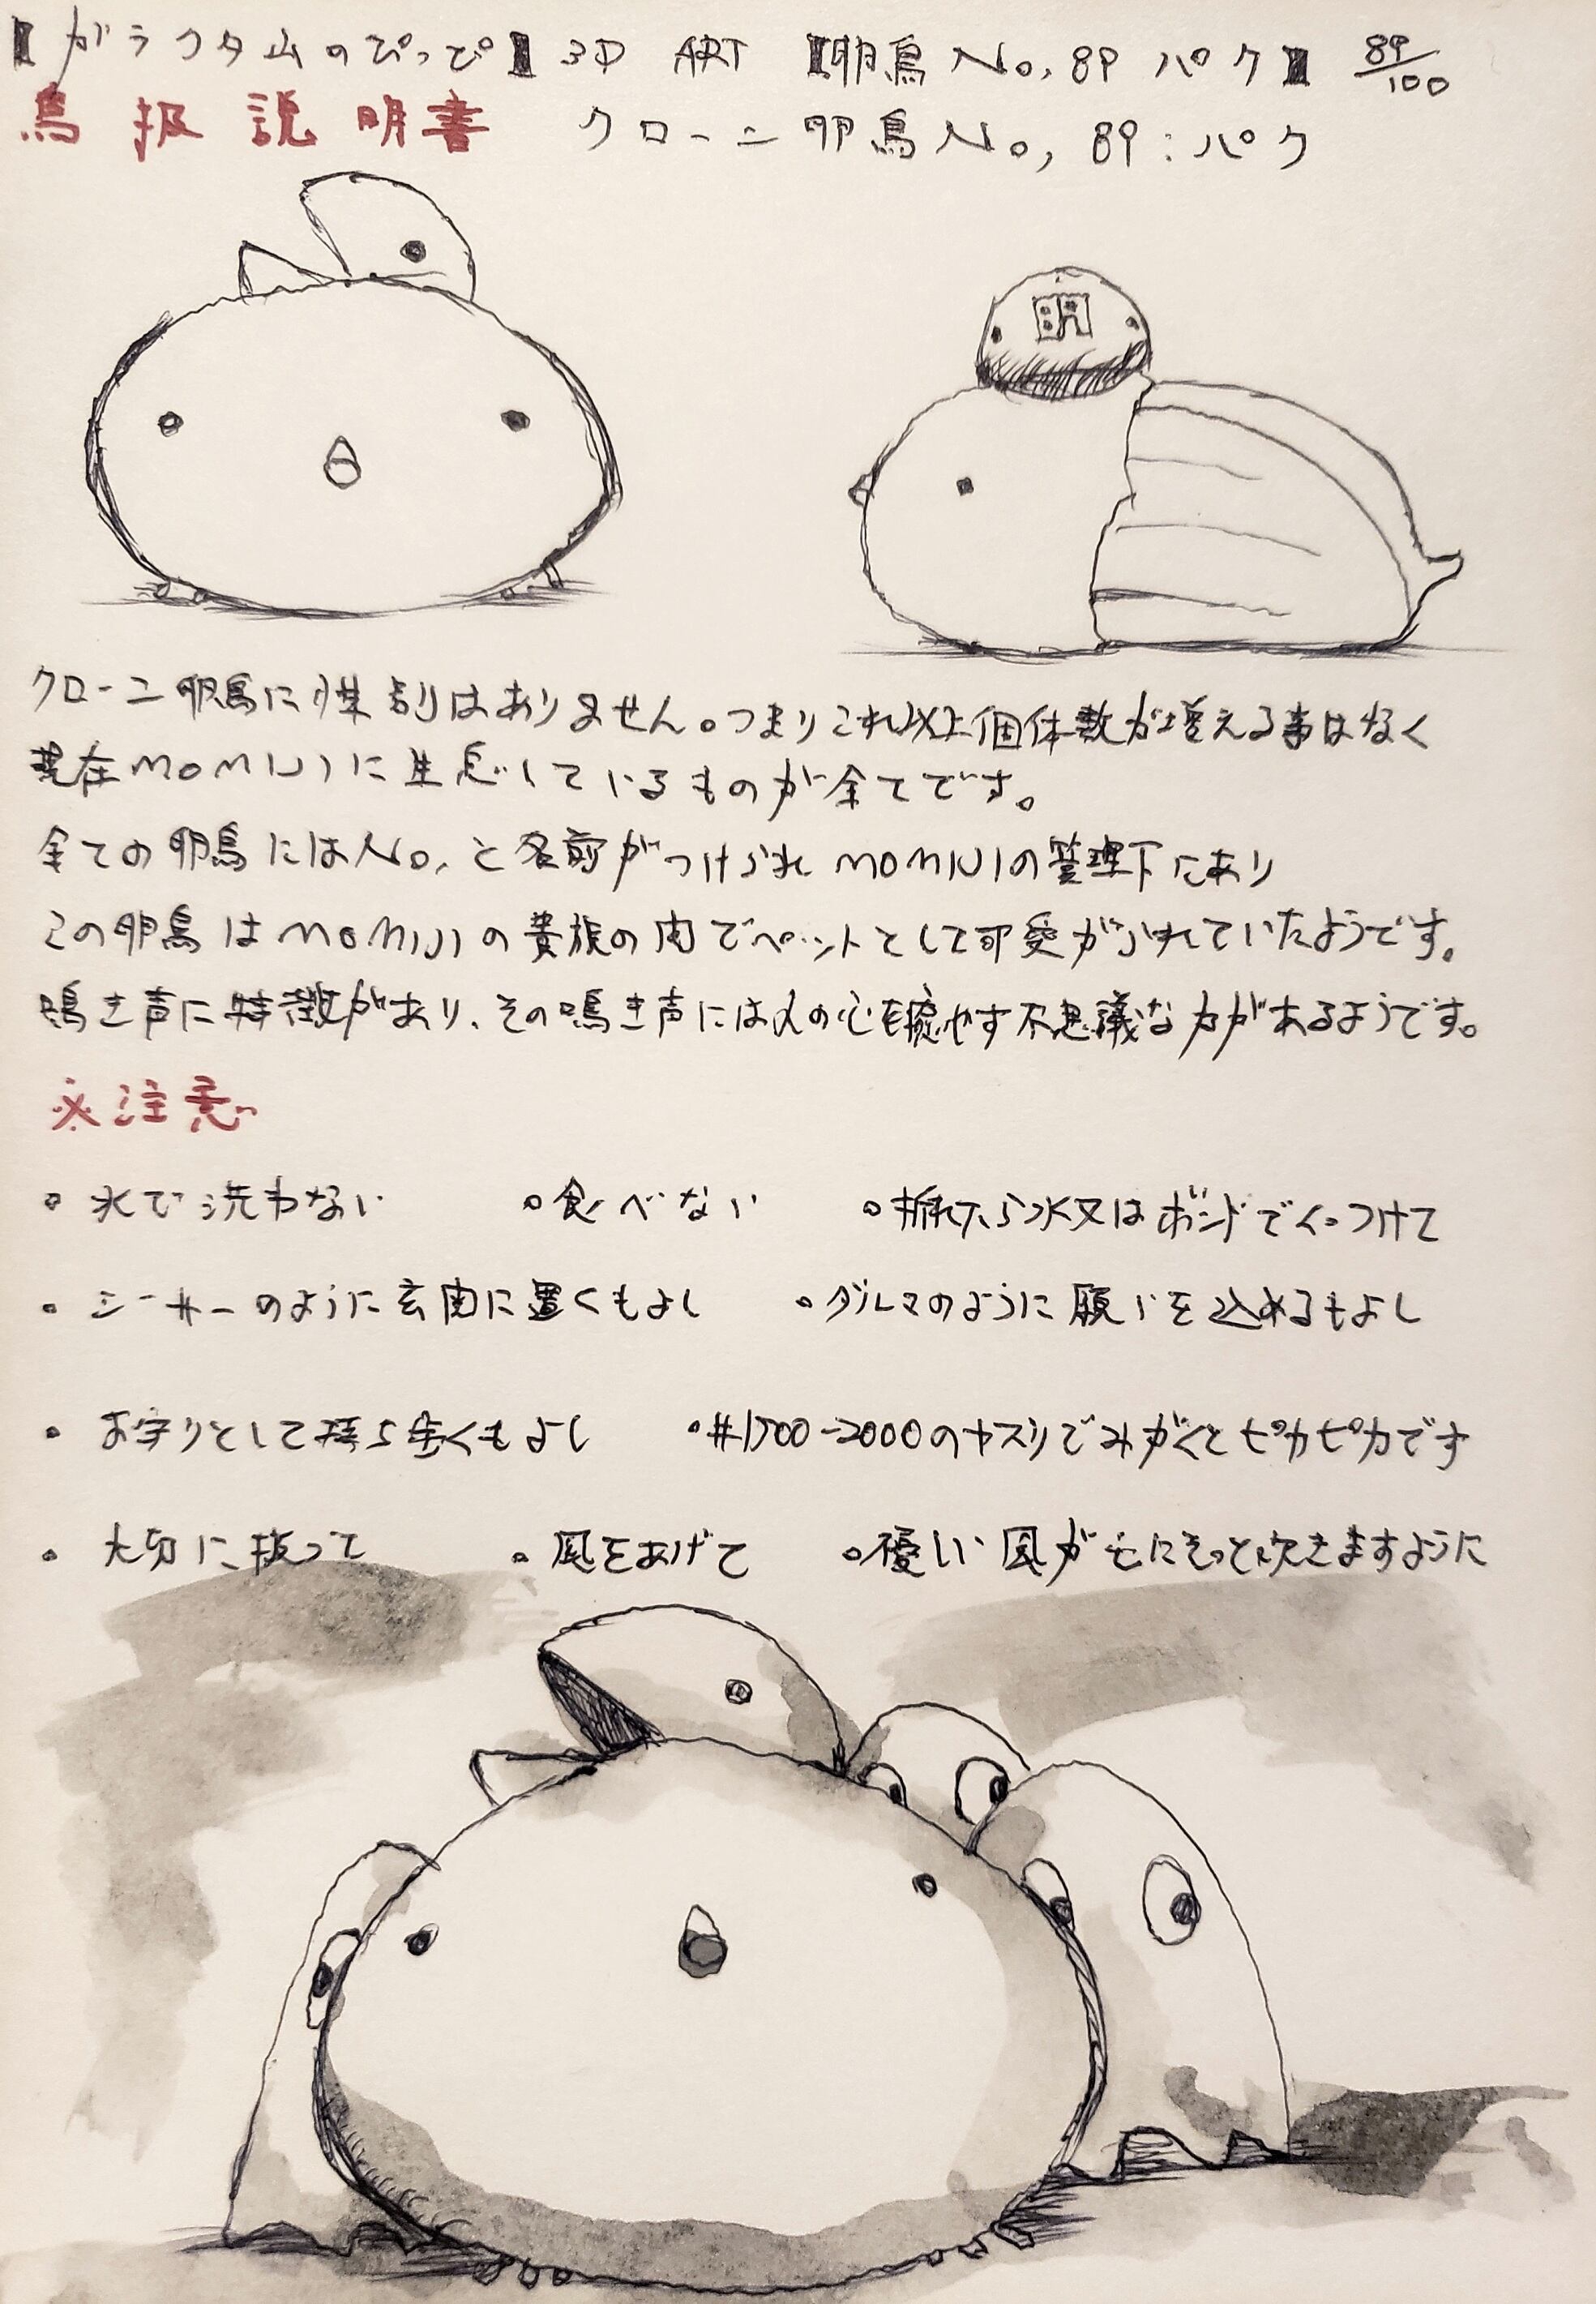 【ガラクタ山のぴっぴ】3D ART 【卵鳥No,89 パク】 89/100
鳥扱説明書 クローニ卵鳥No, 89:パク
明
クローニ卵鳥に性別はありません。つまりこれ以上個体数が増える事はなく
現在MOMIJIに生息しているものが全てです。
全ての卵鳥にはNo,と名前がつけられMOMIJIの管理下にあり
この卵鳥はMOMIJIの貴族の内でペットとして可愛がられていたようです。
鳴き声に特徴があり、その鳴き声には人の心を癒やす不思議な力があるようです。
※注意
・水で洗わない ・食べない ・折れたら水又はボンドでくっつけて
・シーサーのように玄関に置くもよし ・ダルマのように願いを込めるもよし
・お守りとして持ち歩くもよし ・#1500-2000のヤスリでみがくとピカピカです
・大切に扱って ・風をあげて ・優しい風が
にそっと吹きますように